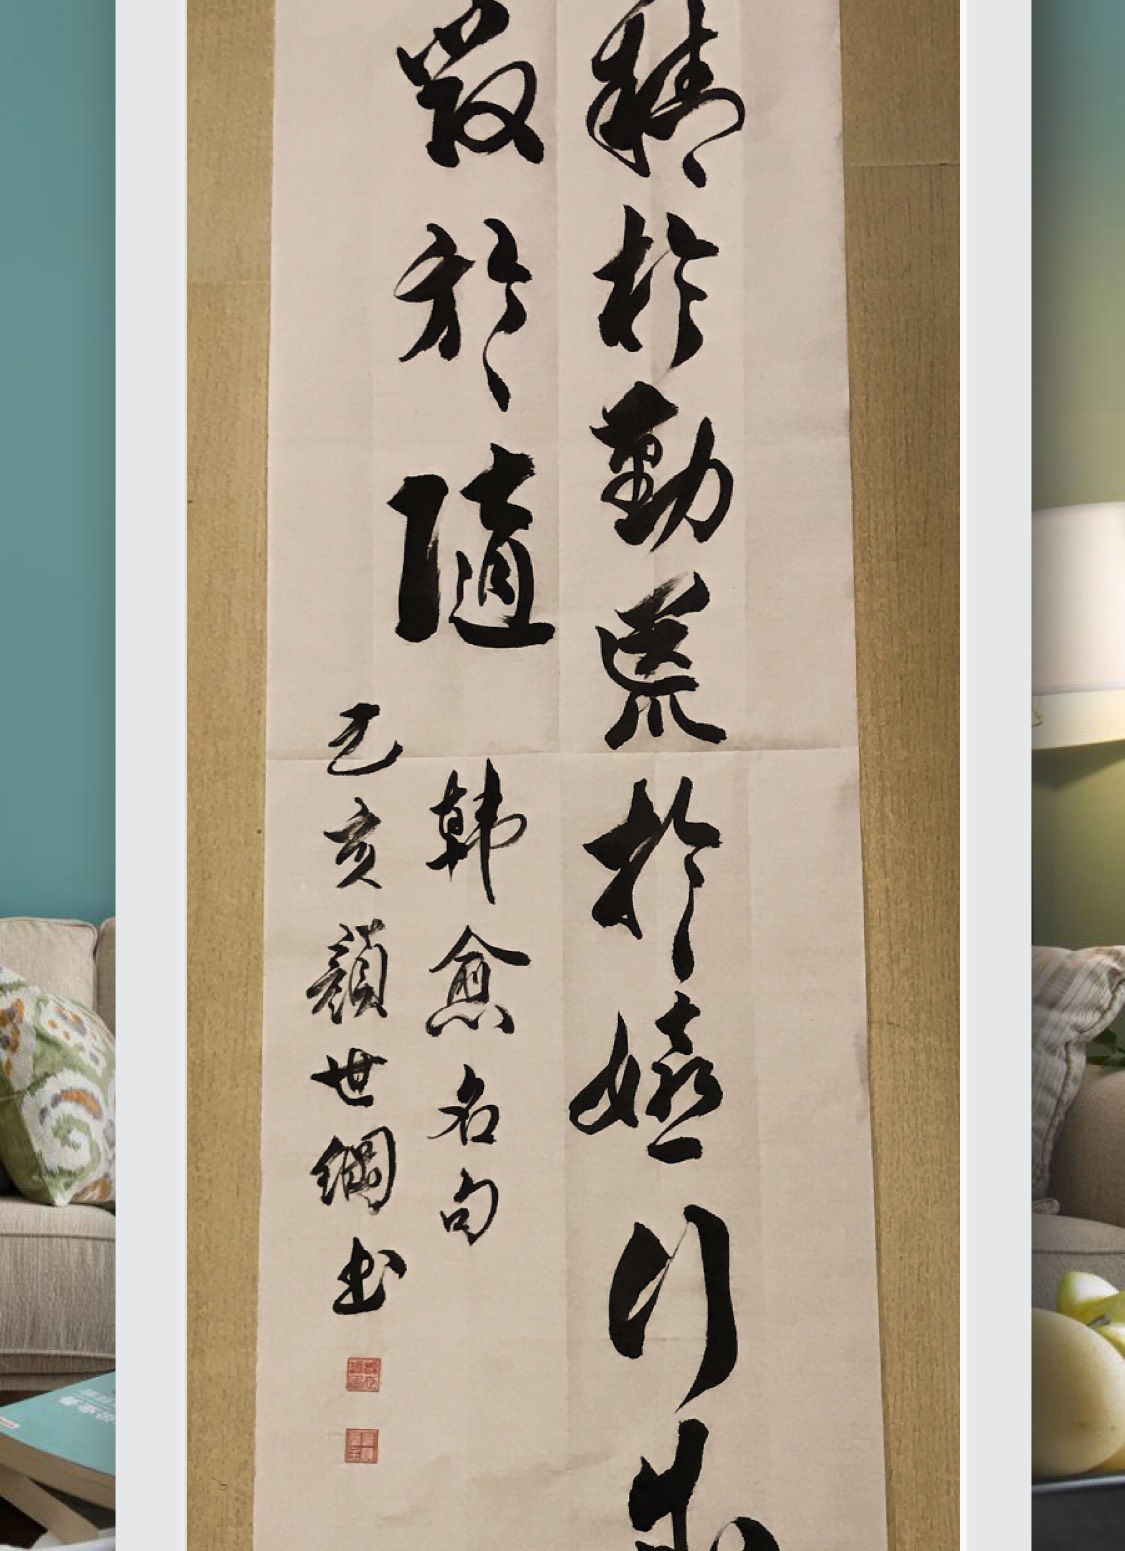 精於勤荒於嬉行
毀於隨
韩愈名句
己亥顏世綱書